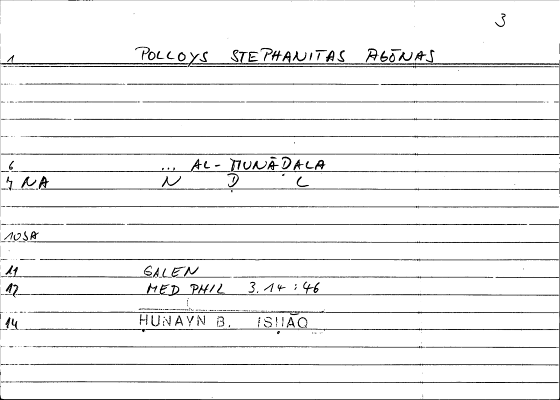 3
1 POLLOYS STEPHANITAS AGŌNAS
6 ... AL-MUNĀḌALA
7 NA N Ḍ L
10 SA
11 GALEN
12 MED PHIL 3.14:46
14 ḤUNAYN B. ISḤĀQ